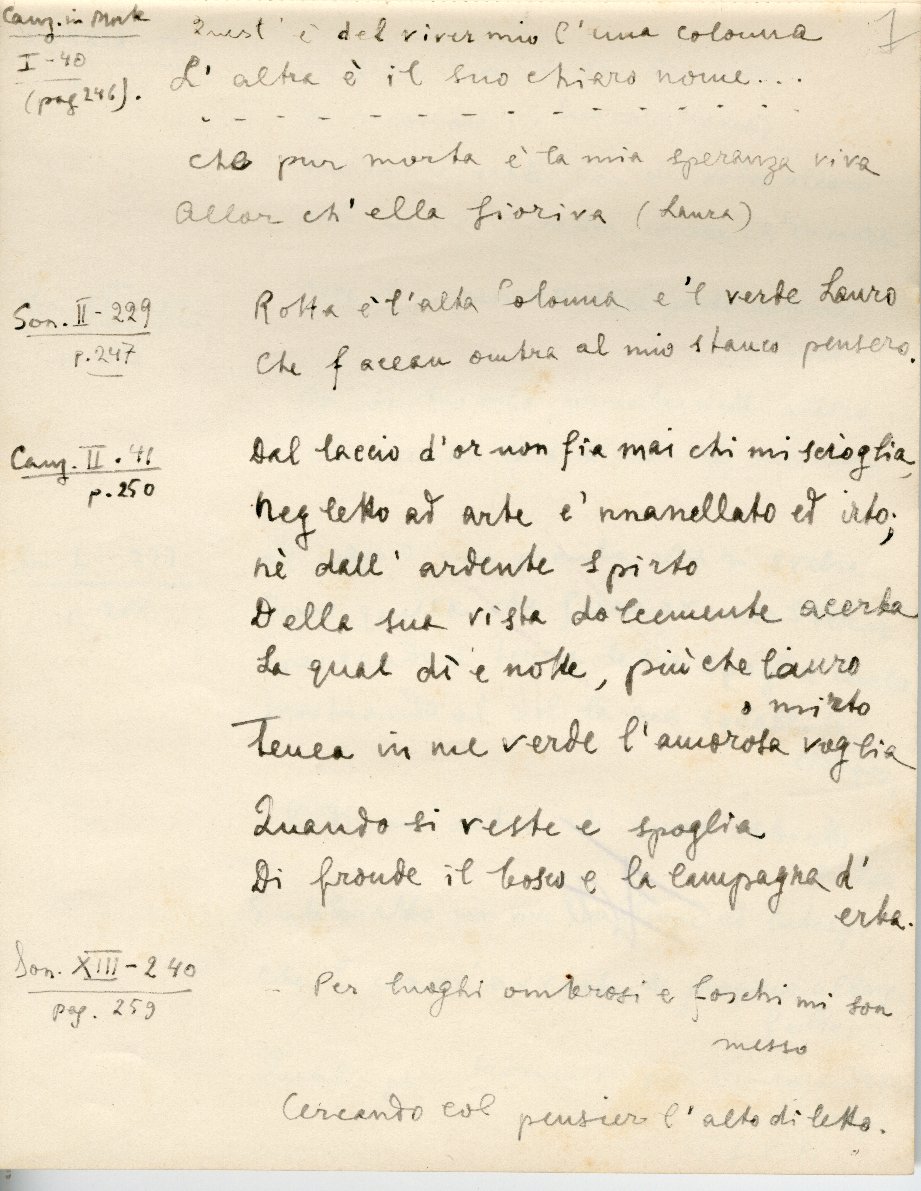 Canz. in Morte
I - 40
(pag 246).
1
Quest' è del viver mio l'una colonna
L' altra è il suo chiaro nome...
- - - - - - - - - - - - - - -
che pur morta è la mia speranza viva
Allor ch'ella fioriva (Laura)
Son. II - 229
p. 247
Rotta è l'alta Colonna e 'l verde Lauro
Che facean ombra al mio stanco pensero.
Canz. II. 41
p. 250
Dal laccio d'or non fia mai chi mi scioglia,
Negletto ad arte e' nnanellato ed irto;
nè dall' ardente spirto
Della sua vista dolcemente acerba
La qual dì e notte, più che lauro
o mirto
Tenea in me verde l'amorosa voglia
Quando si veste e spoglia
Di fronde il bosco e la campagna d'
erba.
Son. XIII - 240
pag. 259
- Per luoghi ombrosi e foschi mi son
messo
Cercando col pensier l'alto diletto.